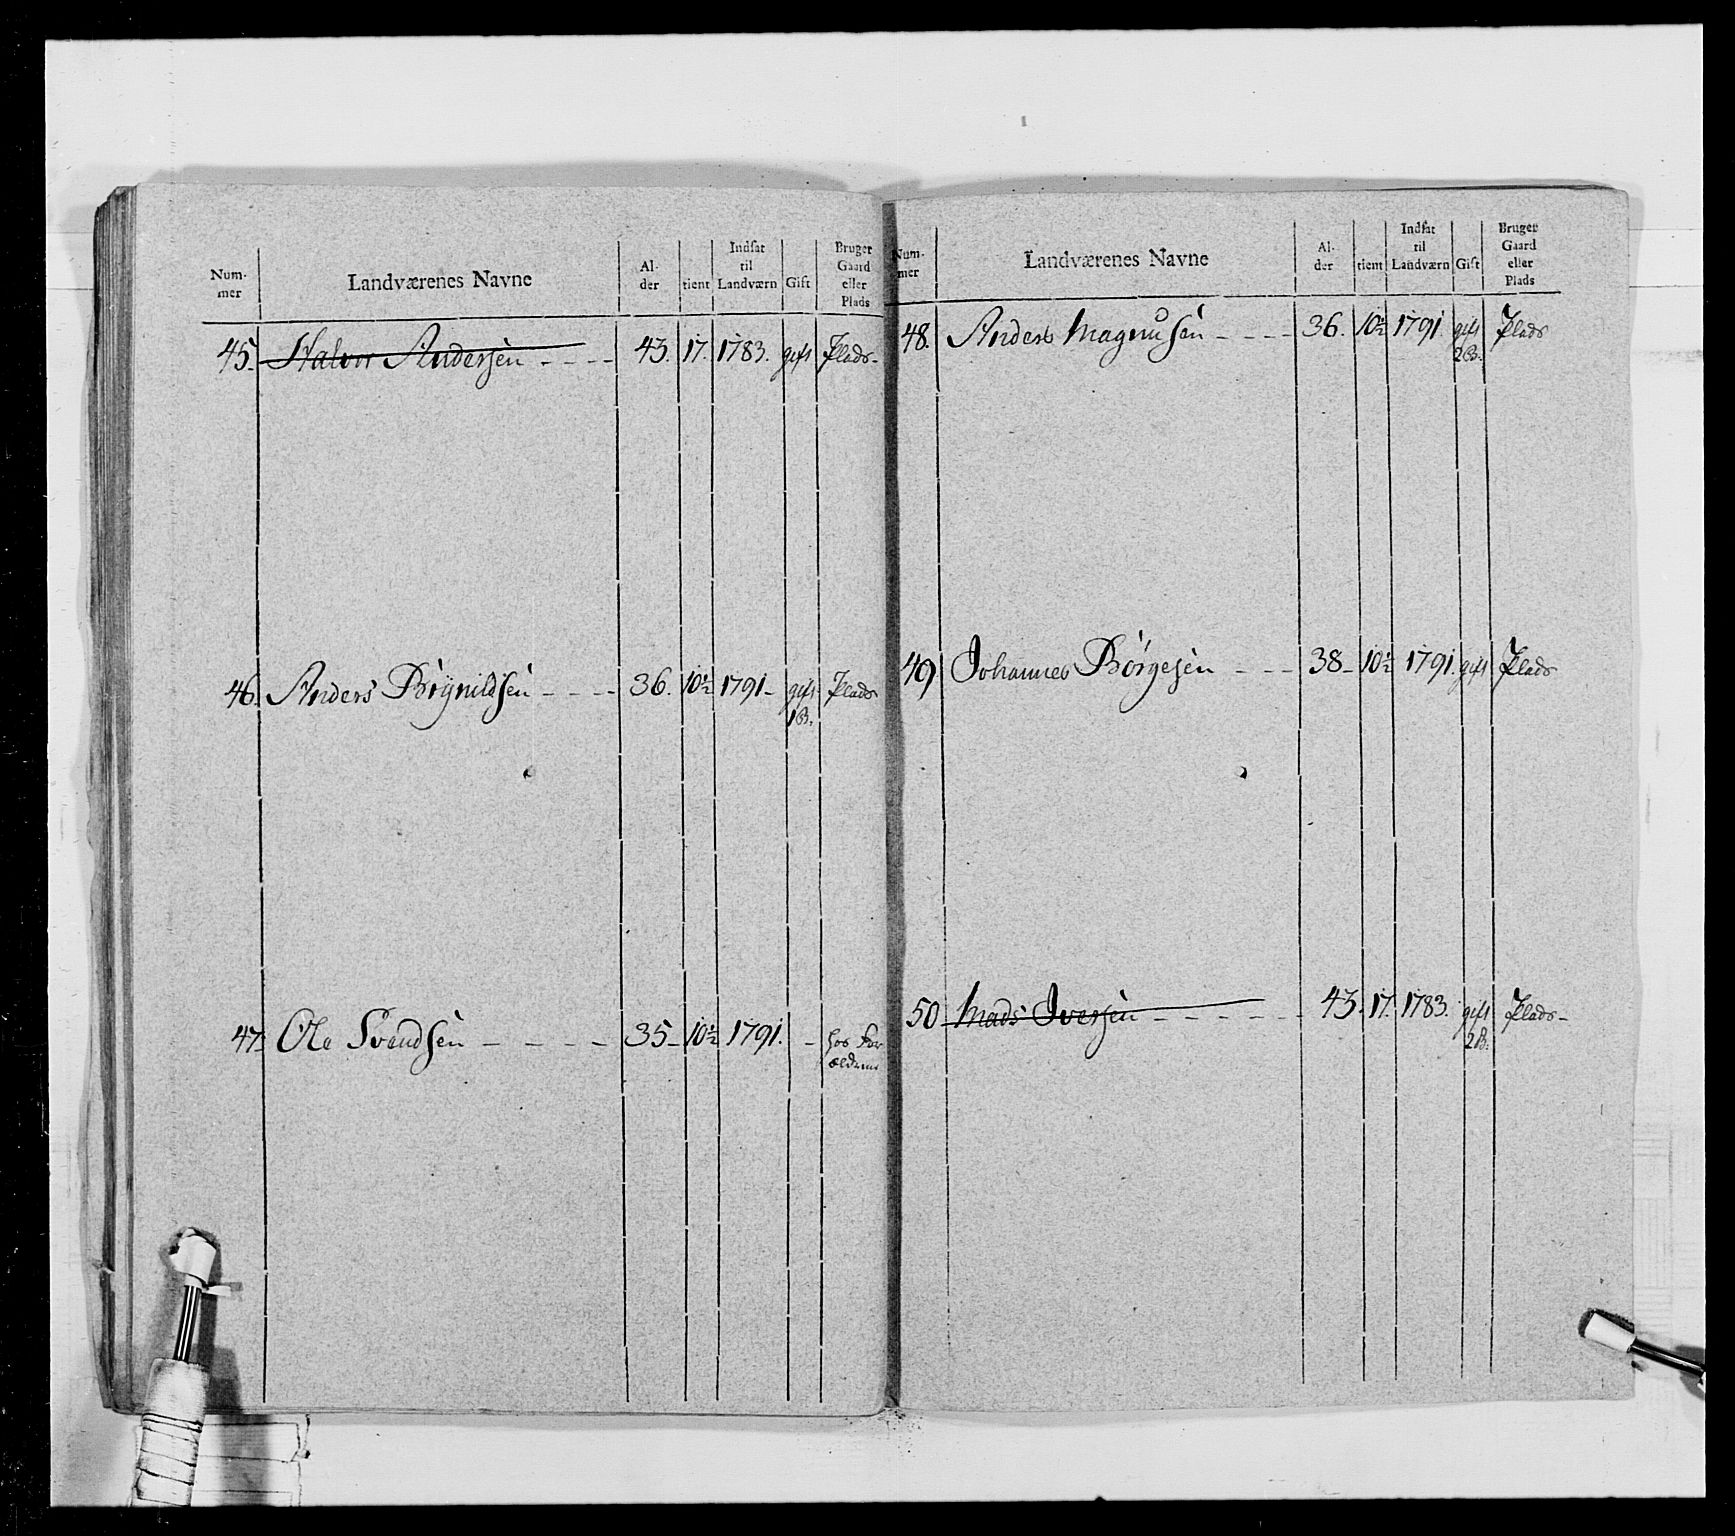 Num-
mer
Landværenes Navne
Al-
der
tient
Indsat
til
Landværn
Gift
Bruger
Gaard
eller
Plads
45. Halvor Andersen - - - - 43. 17. 1783. gift Plads-
46. Anders Brynildsen - - - - 36. 10½ 1791- gift Plads
1B.
47. Ole Svendsen - - - - - 35- 10½ 1791. - hos For
ældrene
Num-
mer
Landværenes Navne
Al-
der
tient
Indsat
til
Landværn
Gift
Bruger
Gaard
eller
Plads
48. Anders Magnusen - - - - 36. 10½ 1791. gift Plads
2B.
49 Johannes Börgesen - - - 38- 10½ 1791. gift Plads
50 Mads Iversen - - - - - - 43. 17. 1783. gift Plads-
2B.